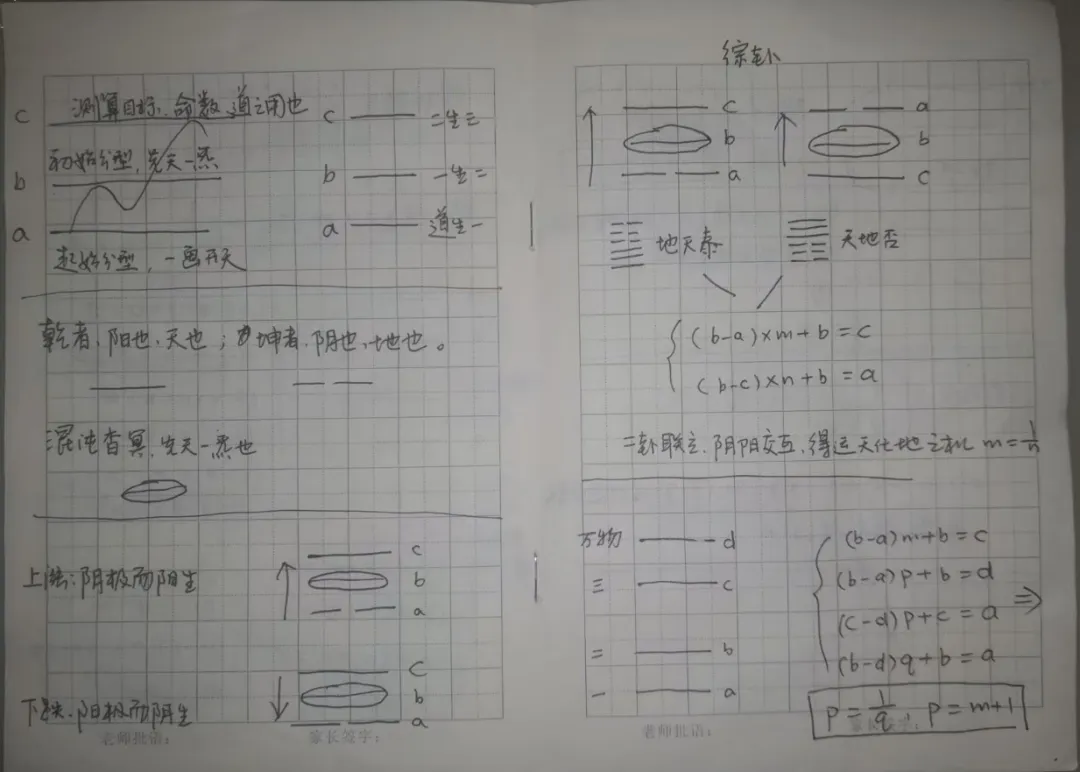 c 测算目标、命数,道之用也
c 二生三
初始分型,先天一炁
b
b 一生二
a
a 道生一
起始分型,一画开天
乾者、阳也、天也;坤者、阴也、地也。
混沌杳冥,先天一炁也
c
上涨:阴极而阳生 b
a
c
b
下跌:阳极而阴生 a
老师批语: 家长签字:
综卦
c a
b b
a c
地天泰 天地否
(b-a)×m+b=c
(b-c)×n+b=a
二卦联立、阴阳交互,得运天化地之机 m=1/n
万物 d
三 c
二 b
一 a
(b-a)m+b=c
(b-a)p+b=d
(c-d)p+c=a ⇒
(b-d)q+b=a
p=1/q, p=m+1
老师批语: